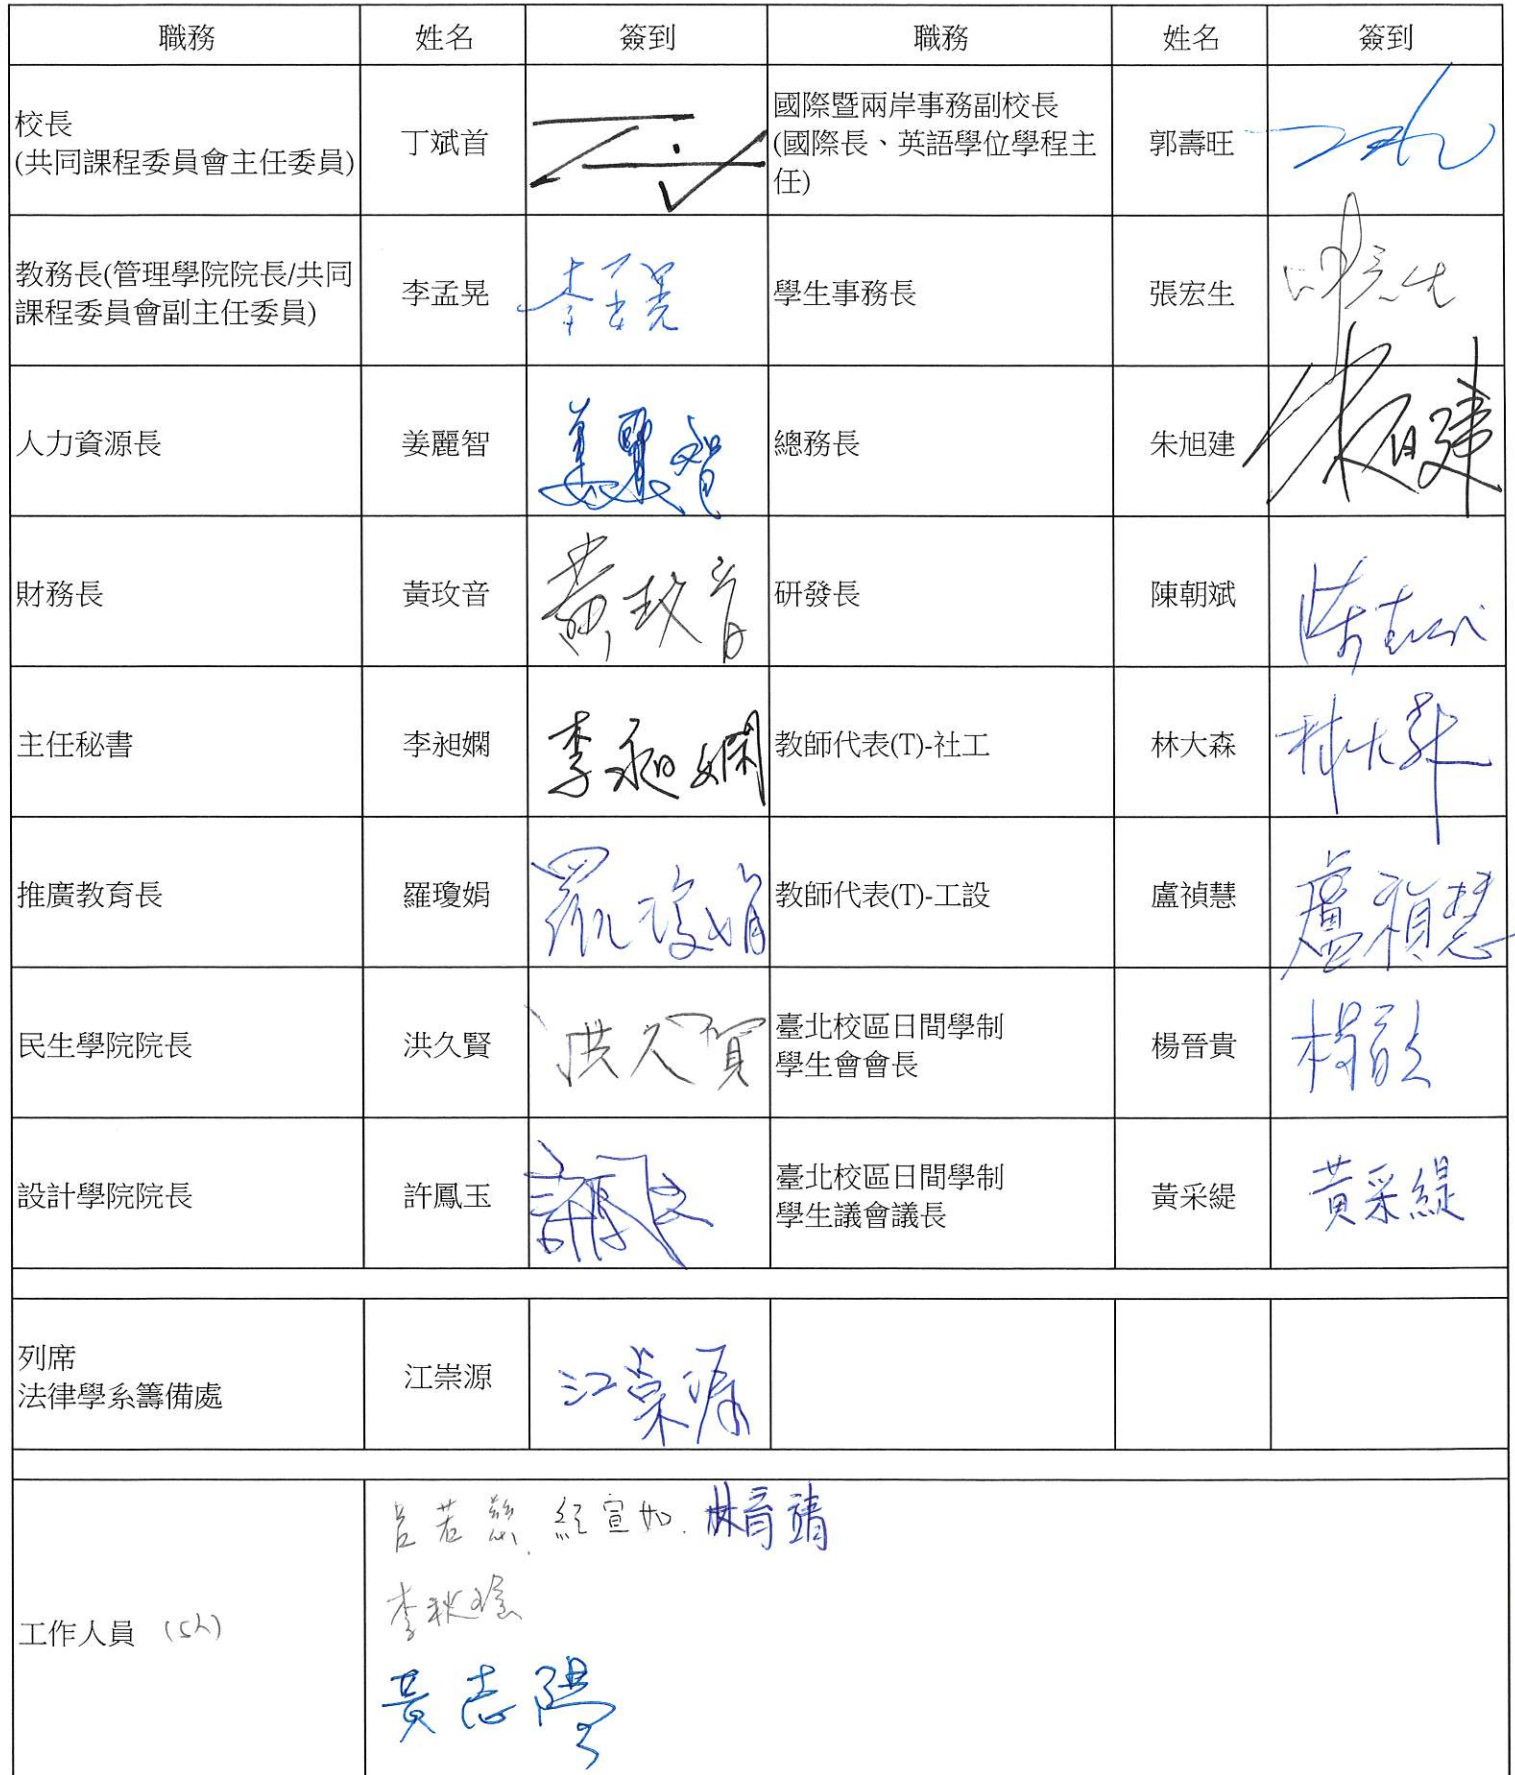 職務 姓名 簽到 職務 姓名 簽到
校長
(共同課程委員會主任委員)
丁斌首
國際暨兩岸事務副校長
(國際長、英語學位學程主
任)
郭壽旺
教務長(管理學院院長/共同
課程委員會副主任委員)
李孟晃 李孟晃
學生事務長
張宏生
人力資源長
姜麗智 姜麗智
總務長
朱旭建 朱旭建
財務長
黃玫音 黃玫音
研發長
陳朝斌
主任秘書
李昶嫻 李昶嫻
教師代表(T)-社工
林大森 林大森
推廣教育長
羅瓊娟 羅瓊娟
教師代表(T)-工設
盧禎慧 盧禎慧
民生學院院長
洪久賢 洪久賢
臺北校區日間學制
學生會會長
楊晉貴
設計學院院長
許鳳玉
臺北校區日間學制
學生議會議長
黃采緹 黃采緹
列席
法律學系籌備處
江崇源 江崇源
工作人員 (5人)
呂若慈 紀宣如 林育靖
李秋瑩
黃志陽